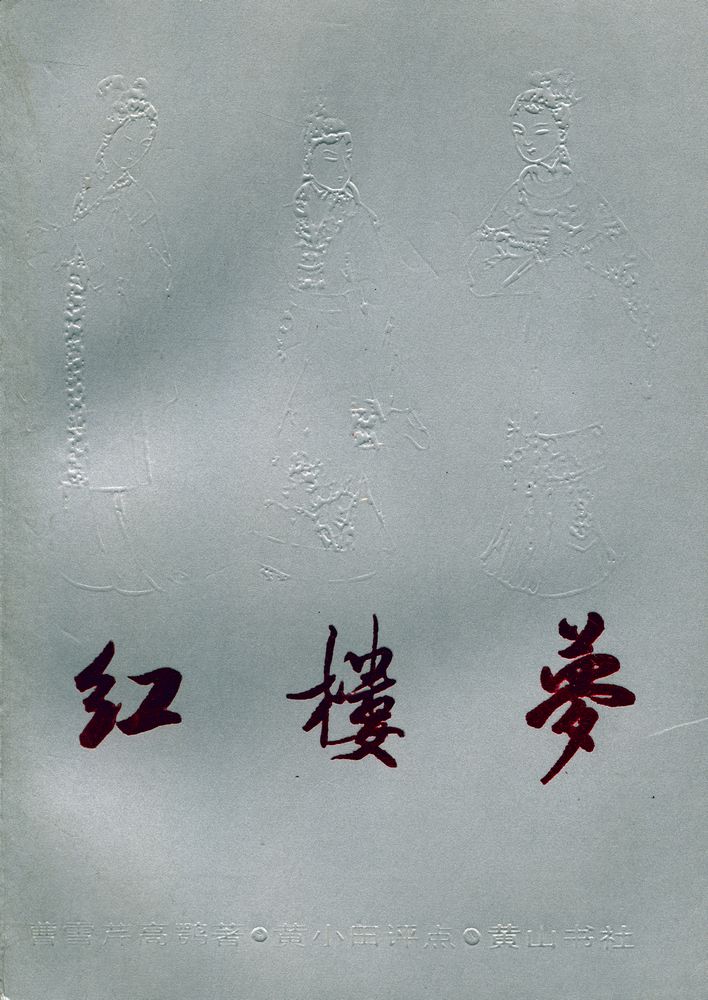 红 楼 夢
曹雪芹高鹗著•黄小田评点•黄山书社